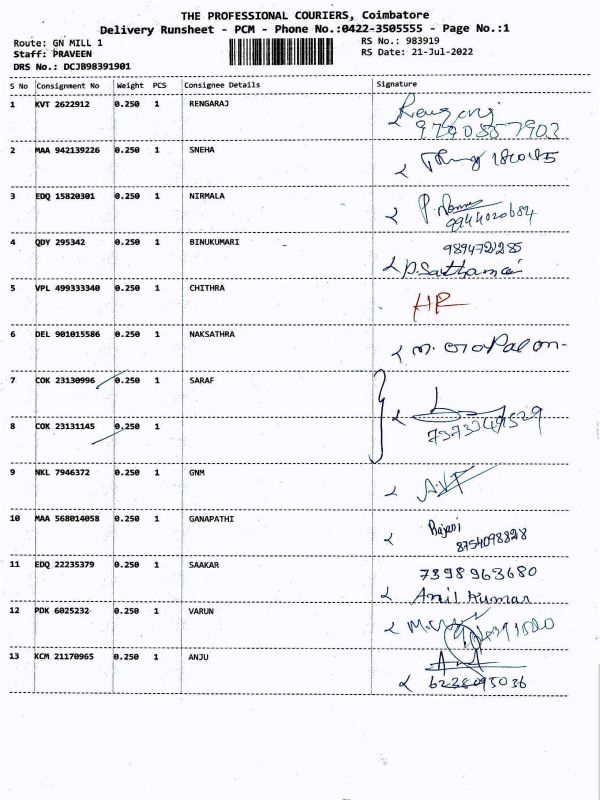 THE PROFESSIONAL COURIERS, Coimbatore
Delivery Runsheet - PCM - Phone No.:0422-3505555 - Page No.:1
Route: GN MILL 1
Staff: PRAVEEN
DRS No.: DCJB98391901
RS No.: 983919
RS Date: 21-Jul-2022
S No Consignment No Weight PCS Consignee Details Signature
1 KVT 2622912 0.250 1 RENGARAJ
2 MAA 942139226 0.250 1 SNEHA
3 EDQ 15820301 0.250 1 NIRMALA
9944020684
9894721285
4 QDY 295342 0.250 1 BINUKUMARI
5 VPL 499333340 0.250 1 CHITHRA
HR
6 DEL 901015586 0.250 1 NAKSATHRA
7 COK 23130996 0.250 1 SARAF
8 COK 23131145 0.250 1
9 NKL 7946372 0.250 1 GNM
10 MAA 568014058 0.250 1 GANAPATHI
Rajani
8754098828
11 EDQ 22235379 0.250 1 SAAKAR
7398963680
Anil Kumar
12 PDK 6025232 0.250 1 VARUN
13 KCM 21170965 0.250 1 ANJU
6238095036